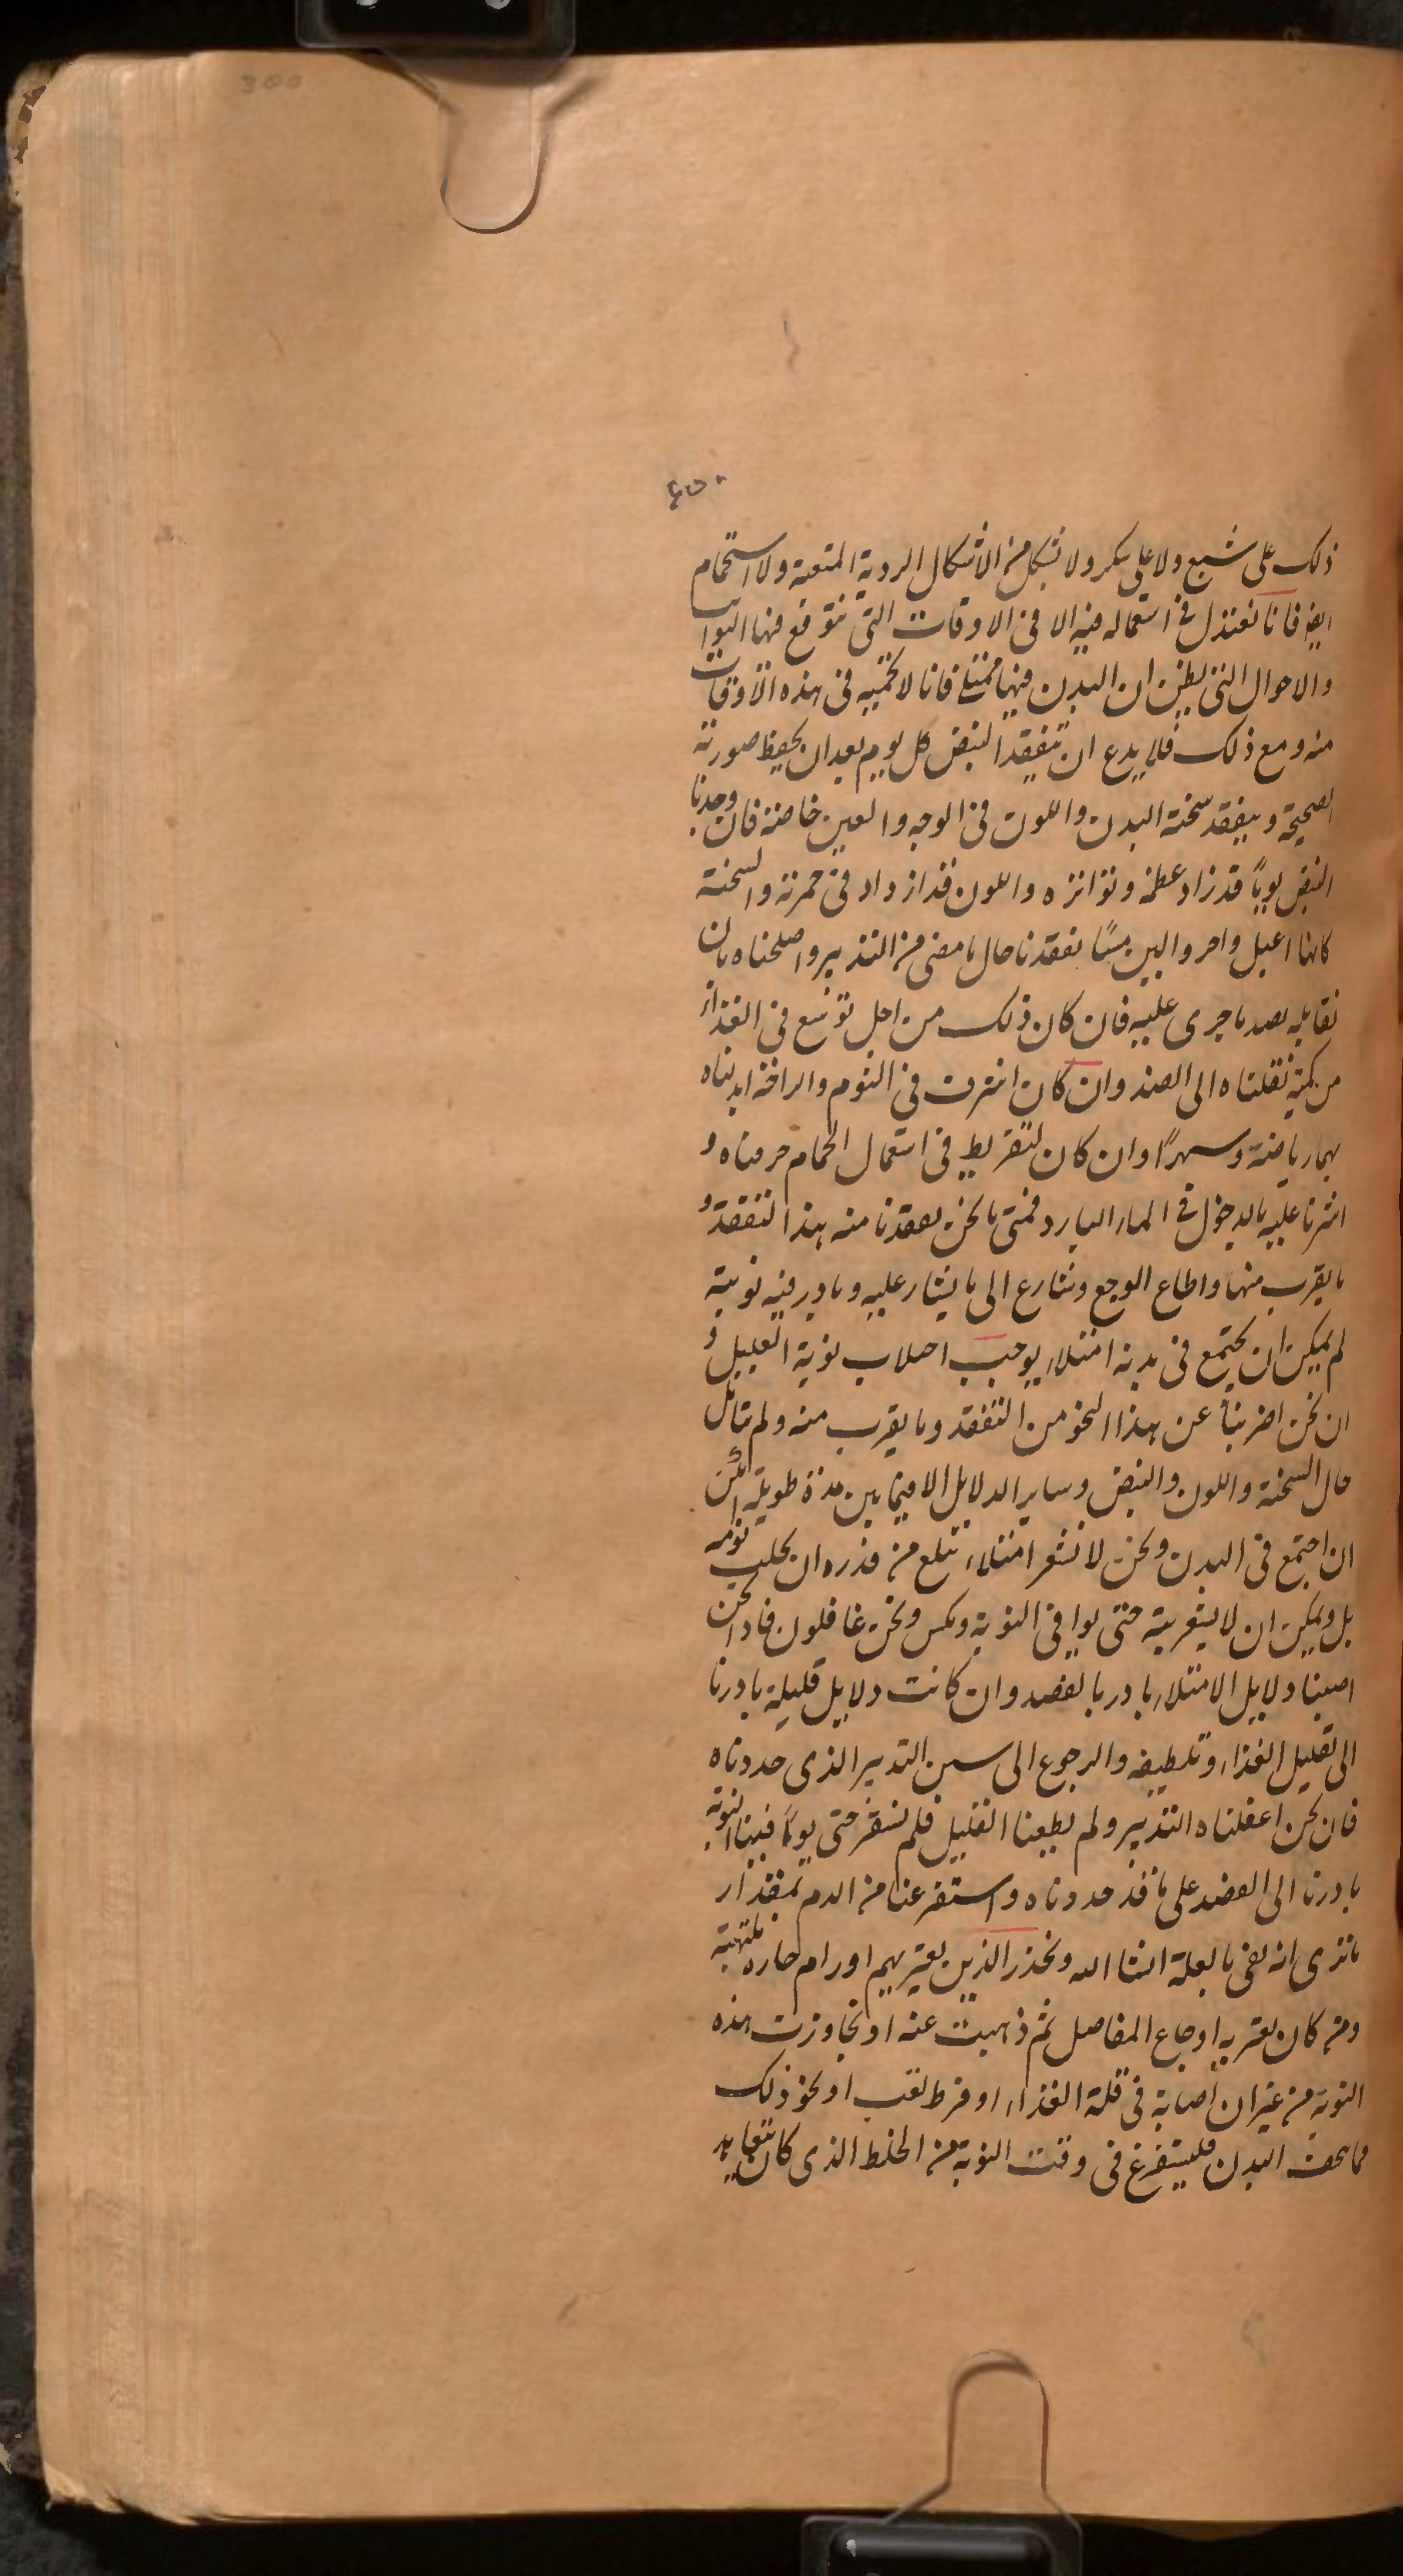 300
ذلك على شبع ولا على سكر ولا بشكل من الاشكال الردية المتعبة ولا استحمام
ايضا فانا نعتدل في استعماله فيه الا في الاوقات التى نتوقع فيها النوايب
والاحوال التى يظن ان البدن فيها ممتلئ فانا لا نحميه في هذه الاوقات
منه ومع ذلك فلا يدع ان يتفقد النبض كل يوم بعد ان يحفظ صورته
الصحيحة ويتفقد سخنة البدن واللون في الوجه والعين خاصة فان وجدنا
النبض يوما قد زاد عظمه وتواتره واللون قد ازداد في حمرته والسخنة
كانها اعبل واحر والين مسا تفقدنا حال ما مضى من التدبير واصلحناه بان
نقابله بضد ما جرى عليه فان كان ذلك من اجل توسع في الغذاء
من كميته نقلناه الى الضد وان كان اشرف في النوم والراحة ابدلناه
بهما رياضة وسهرا وان كان لتفريط في استعمال الحمام حرمناه و
اشرنا عليه بالدخول في الماء البارد فمتى ما نحن تفقدنا منه هذا التفقد و
ما يقرب منها واطاع الوجع وتسارع الى ما يشار عليه وبادر فيه نوبته
لم يمكن ان يجتمع في بدنه امتلاء يوجب اجلاب نوبة العليل و
ان نحن اضربنا عن هذا النحو من التفقد وما يقرب منه ولم نتامل
حال السخنة واللون والنبض وساير الدلايل الا فيما بين مدة طويلة امكن
ان اجتمع في البدن ونحن لا نشعر امتلاء تبلغ من قدره ان يجلب نوبة
بل ويمكن ان لا يشعر به حتى يوافي النوبة ونحن غافلون فاذا نحن
اصبنا دلايل الامتلاء بادرنا بالفصد وان كانت دلايل قليلة بادرنا
الى تقليل الغذاء وتلطيفه والرجوع الى سنن التدبير الذى حددناه
فان نحن اغفلناه التدبير ولم يطعنا العليل فلم نشعر حتى يوما فيبنا النوبة
بادرنا الى الفصد على ما قد حددناه واستفرغنا من الدم بمقدار
ما نرى انه يفى بالعلة انشا الله ونحذر الذين يعتريهم اورام حاره ملتهبة
ومن كان يعتريه اوجاع المفاصل ثم ذهبت عنه او تجاوزت هذه
النوبة من غير ان اصابه في قلة الغذاء او فرط تعب او نحو ذلك
مما يجفف البدن فليستفرغ في وقت النوبة من الخلط الذى كان يتعاهد